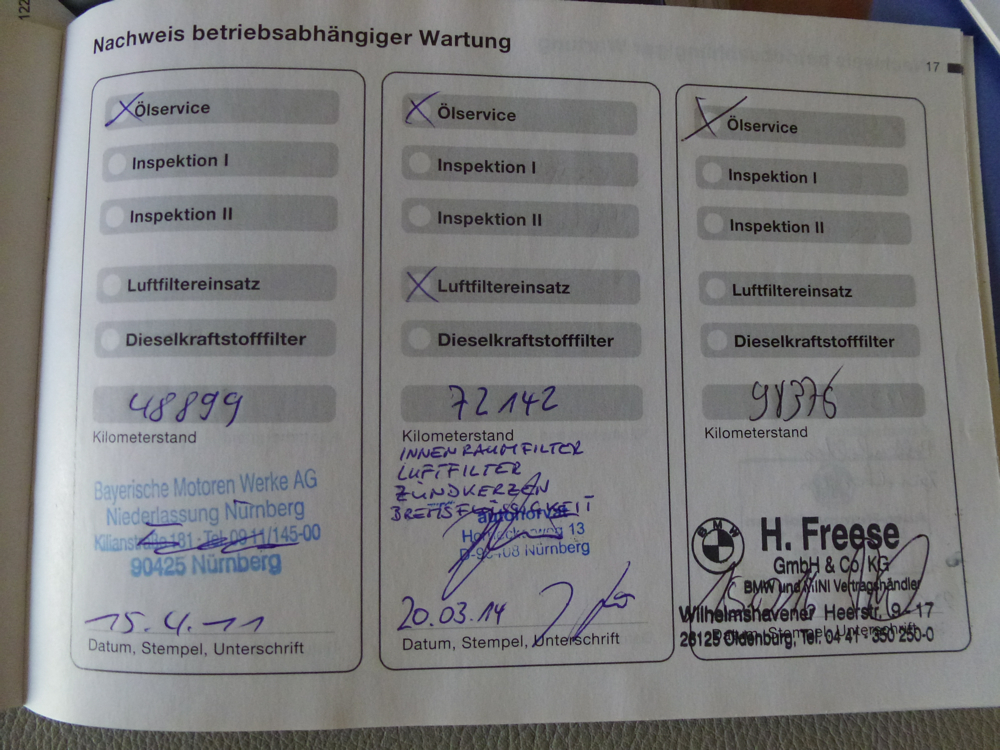 122
Nachweis betriebsabhängiger Wartung
17
Ölservice
Inspektion I
Inspektion II
Luftfiltereinsatz
Dieselkraftstofffilter
48899
Kilometerstand
Bayerische Motoren Werke AG
Niederlassung Nürnberg
Kilianstraße 181 - Tel. 0911/145-00
90425 Nürnberg
15.4.11
Datum, Stempel, Unterschrift
Ölservice
Inspektion I
Inspektion II
Luftfiltereinsatz
Dieselkraftstofffilter
72142
Kilometerstand
INNENRAUMFILTER
LUFTFILTER
ZÜNDKERZEN
BREMSFLÜSSIGKEIT
13
Nürnberg
20.03.14
Datum, Stempel, Unterschrift
Ölservice
Inspektion I
Inspektion II
Luftfiltereinsatz
Dieselkraftstofffilter
98376
Kilometerstand
BMW
H. Freese
GmbH & Co. KG
BMW und MINI Vertragshändler
Wilhelmshavener Heerstr. 9-17
26125 Oldenburg, Tel. 04 41 - 350 250-0
Datum, Stempel, Unterschrift